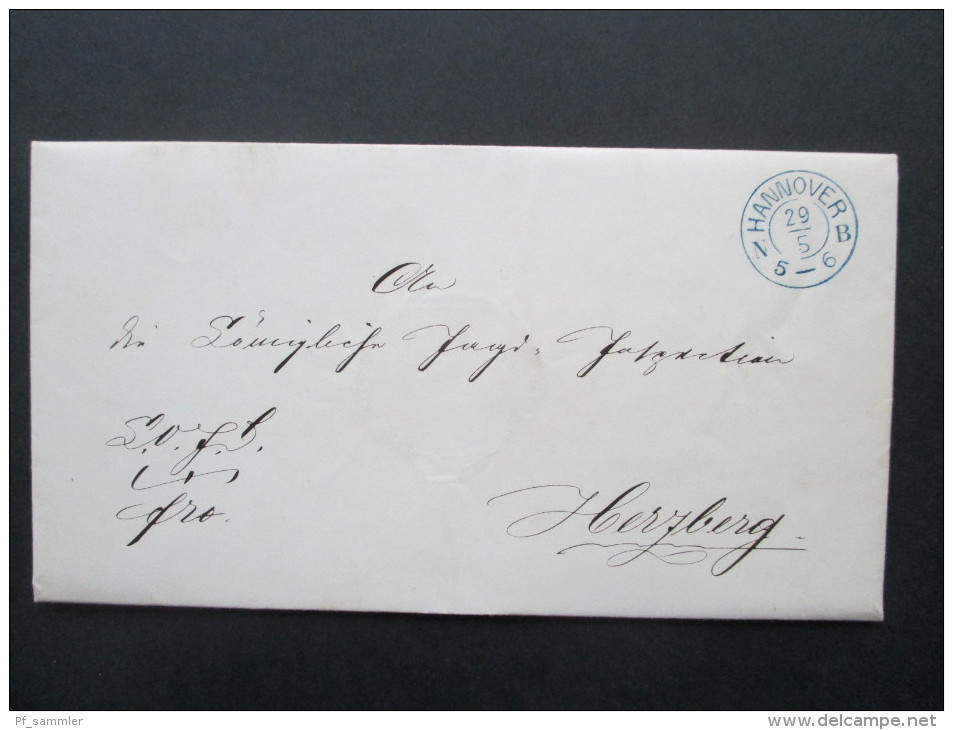 HANNOVER
N B
29
5
5 — 6
An
die Königliche Jagd-Inspection
fro.
Herzberg.
Pf_sammler
www.delcampe.net